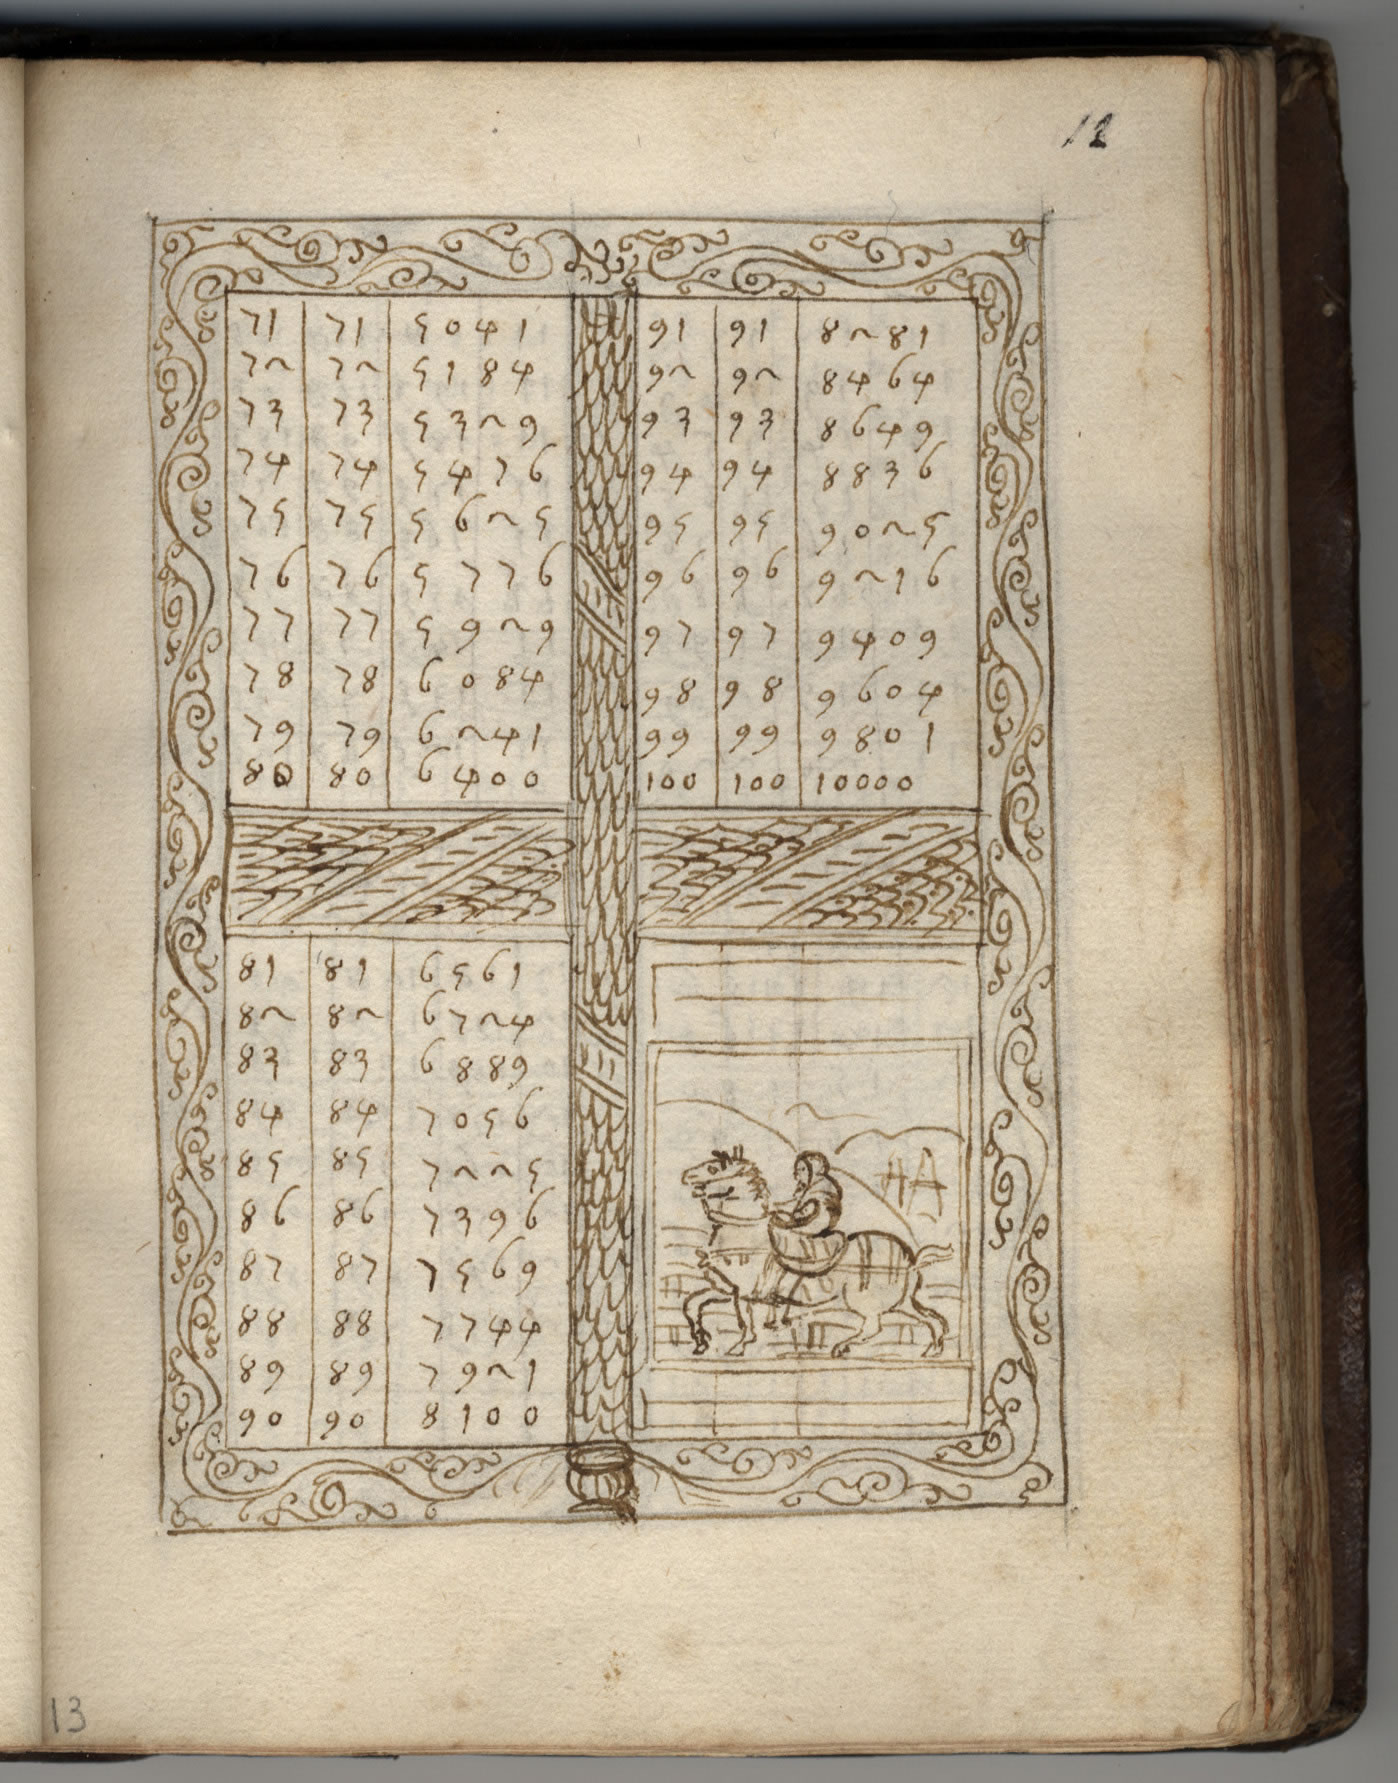 12
71 71 5041
72 72 5184
73 73 5329
74 74 5476
75 75 5625
76 76 5776
77 77 5929
78 78 6084
79 79 6241
80 80 6400
91 91 8281
92 92 8464
93 93 8649
94 94 8836
95 95 9025
96 96 9216
97 97 9409
98 98 9604
99 99 9801
100 100 10000
81 81 6561
82 82 6724
83 83 6889
84 84 7056
85 85 7225
86 86 7396
87 87 7569
88 88 7744
89 89 7921
90 90 8100
13